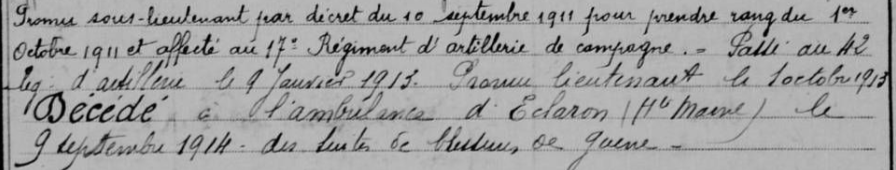 Promu sous-lieutenant par décret du 10 septembre 1911 pour prendre rang du 1er
Octobre 1911 et affecté au 17e Régiment d'artillerie de campagne. - Passé au 42
Reg. d'artillerie le 9 Janvier 1913. Promu lieutenant le 1 octobre 1913
Décédé à l'ambulance d'Eclaron (Hte Marne) le
9 septembre 1914 - des suites de blessures de guerre -